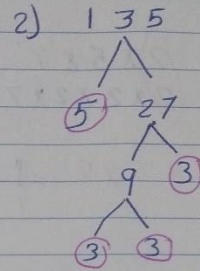 2) 135
5 27
9 3
3 3